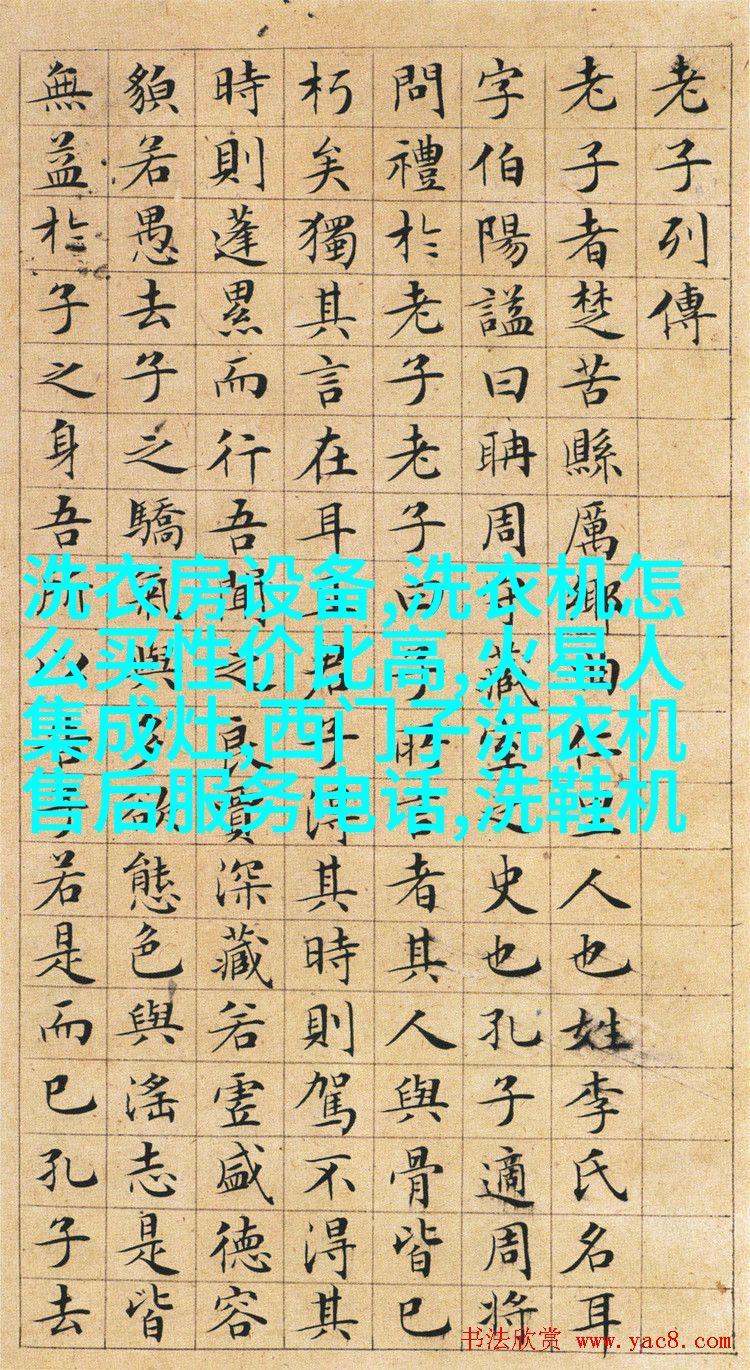 老子列傳
老子者楚苦縣厲鄉曲仁里人也姓李氏名耳
字伯陽謚曰聃周守藏室之史也孔子適周將
問禮於老子老子曰子所言者其人與骨皆已
朽矣獨其言在耳且君子得其時則駕不得其
時則蓬累而行吾聞之良賈深藏若虛盛德容
貌若愚去子之驕氣與多欲態色與淫志是皆
無益於子之身吾所以告子若是而已孔子去
洗衣房设备,洗衣机怎
么买性价比高,火星人
集成灶,西门子洗衣机
售后服务电话,洗鞋机
书法欣赏 www.yac8.com